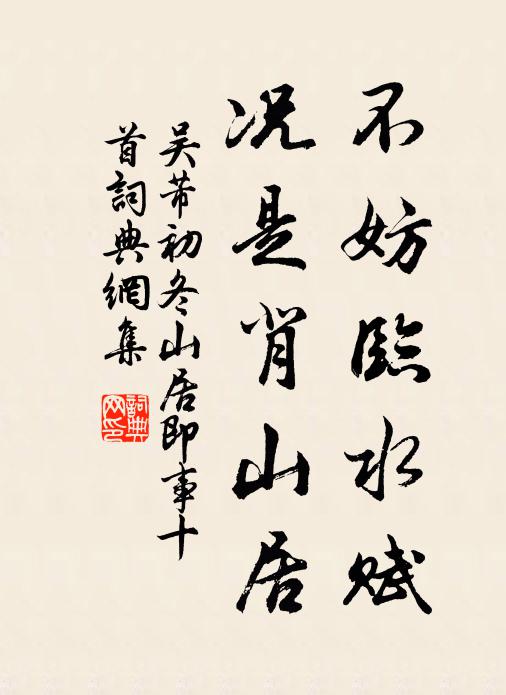 不妨臨水赋
况是背山居
吴芾初冬山居即事十
首詞典網集
詞典
网印